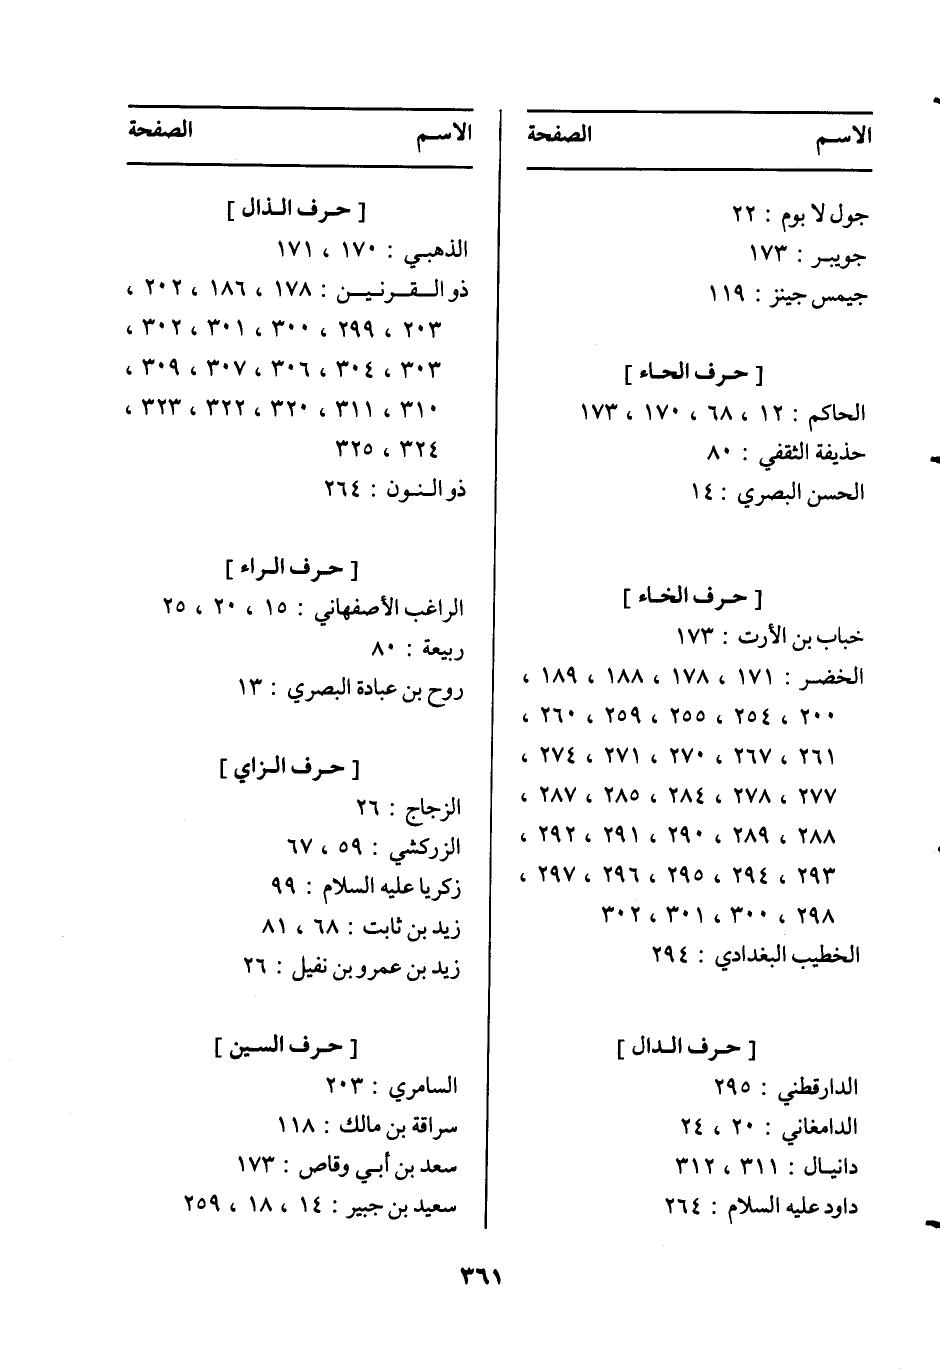 الاسم الصفحة
جول لا بوم : ٢٢
جويبر : ١٧٣
جيمس جينز : ١١٩
[ حرف الحاء ]
الحاكم : ١٢ ، ٦٨ ، ١٧٠ ، ١٧٣
حذيفة الثقفي : ٨٠
الحسن البصري : ١٤
[ حرف الخاء ]
خباب بن الأرت : ١٧٣
الخضر : ١٧١ ، ١٧٨ ، ١٨٨ ، ١٨٩ ،
٢٠٠ ، ٢٥٤ ، ٢٥٥ ، ٢٥٩ ، ٢٦٠ ،
٢٦١ ، ٢٦٧ ، ٢٧٠ ، ٢٧١ ، ٢٧٤ ،
٢٧٧ ، ٢٧٨ ، ٢٨٤ ، ٢٨٥ ، ٢٨٧ ،
٢٨٨ ، ٢٨٩ ، ٢٩٠ ، ٢٩١ ، ٢٩٢ ،
٢٩٣ ، ٢٩٤ ، ٢٩٥ ، ٢٩٦ ، ٢٩٧ ،
٢٩٨ ، ٣٠٠ ، ٣٠١ ، ٣٠٢
الخطيب البغدادي : ٢٩٤
[ حرف الدال ]
الدارقطني : ٢٩٥
الدامغاني : ٢٠ ، ٢٤
دانيال : ٣١١ ، ٣١٢
داود عليه السلام : ٢٦٤
الاسم الصفحة
[ حرف الذال ]
الذهبي : ١٧٠ ، ١٧١
ذو القرنين : ١٧٨ ، ١٨٦ ، ٢٠٢ ،
٢٠٣ ، ٢٩٩ ، ٣٠٠ ، ٣٠١ ، ٣٠٢ ،
٣٠٣ ، ٣٠٤ ، ٣٠٦ ، ٣٠٧ ، ٣٠٩ ،
٣١٠ ، ٣١١ ، ٣٢٠ ، ٣٢٢ ، ٣٢٣ ،
٣٢٤ ، ٣٢٥
ذو النون : ٢٦٤
[ حرف الراء ]
الراغب الأصفهاني : ١٥ ، ٢٠ ، ٢٥
ربيعة : ٨٠
روح بن عبادة البصري : ١٣
[ حرف الزاي ]
الزجاج : ٢٦
الزركشي : ٥٩ ، ٦٧
زكريا عليه السلام : ٩٩
زيد بن ثابت : ٦٨ ، ٨١
زيد بن عمرو بن نفيل : ٢٦
[ حرف السين ]
السامري : ٢٠٣
سراقة بن مالك : ١١٨
سعد بن أبي وقاص : ١٧٣
سعيد بن جبير : ١٤ ، ١٨ ، ٢٥٩
٣٦١